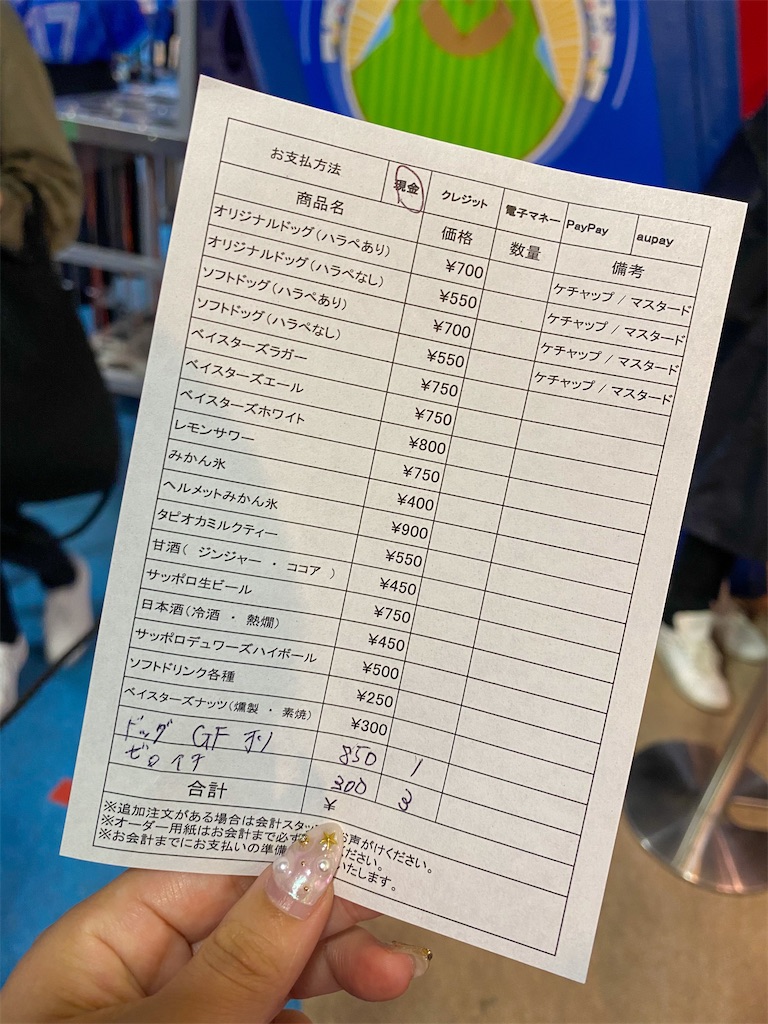 17
お支払方法 現金 クレジット 電子マネー PayPay aupay
商品名 価格 数量 備考
オリジナルドッグ(ハラペあり) ¥700 ケチャップ / マスタード
オリジナルドッグ(ハラペなし) ¥550 ケチャップ / マスタード
ソフトドッグ(ハラペあり) ¥700 ケチャップ / マスタード
ソフトドッグ(ハラペなし) ¥550 ケチャップ / マスタード
ベイスターズラガー ¥750
ベイスターズエール ¥750
ベイスターズホワイト ¥800
レモンサワー ¥750
みかん氷 ¥400
ヘルメットみかん氷 ¥900
タピオカミルクティー ¥550
甘酒( ジンジャー ・ ココア ) ¥450
サッポロ生ビール ¥750
日本酒(冷酒 ・ 熱燗) ¥450
サッポロデュワーズハイボール ¥500
ソフトドリンク各種 ¥250
ベイスターズナッツ(燻製 ・ 素焼) ¥300
ドッグ GF オリ 850 1
ゼロイチ 300 3
合計 ¥
※追加注文がある場合は会計スタッ お声がけください。
※オーダー用紙はお会計まで必ず ください。
※お会計までにお支払いの準備 いたします。